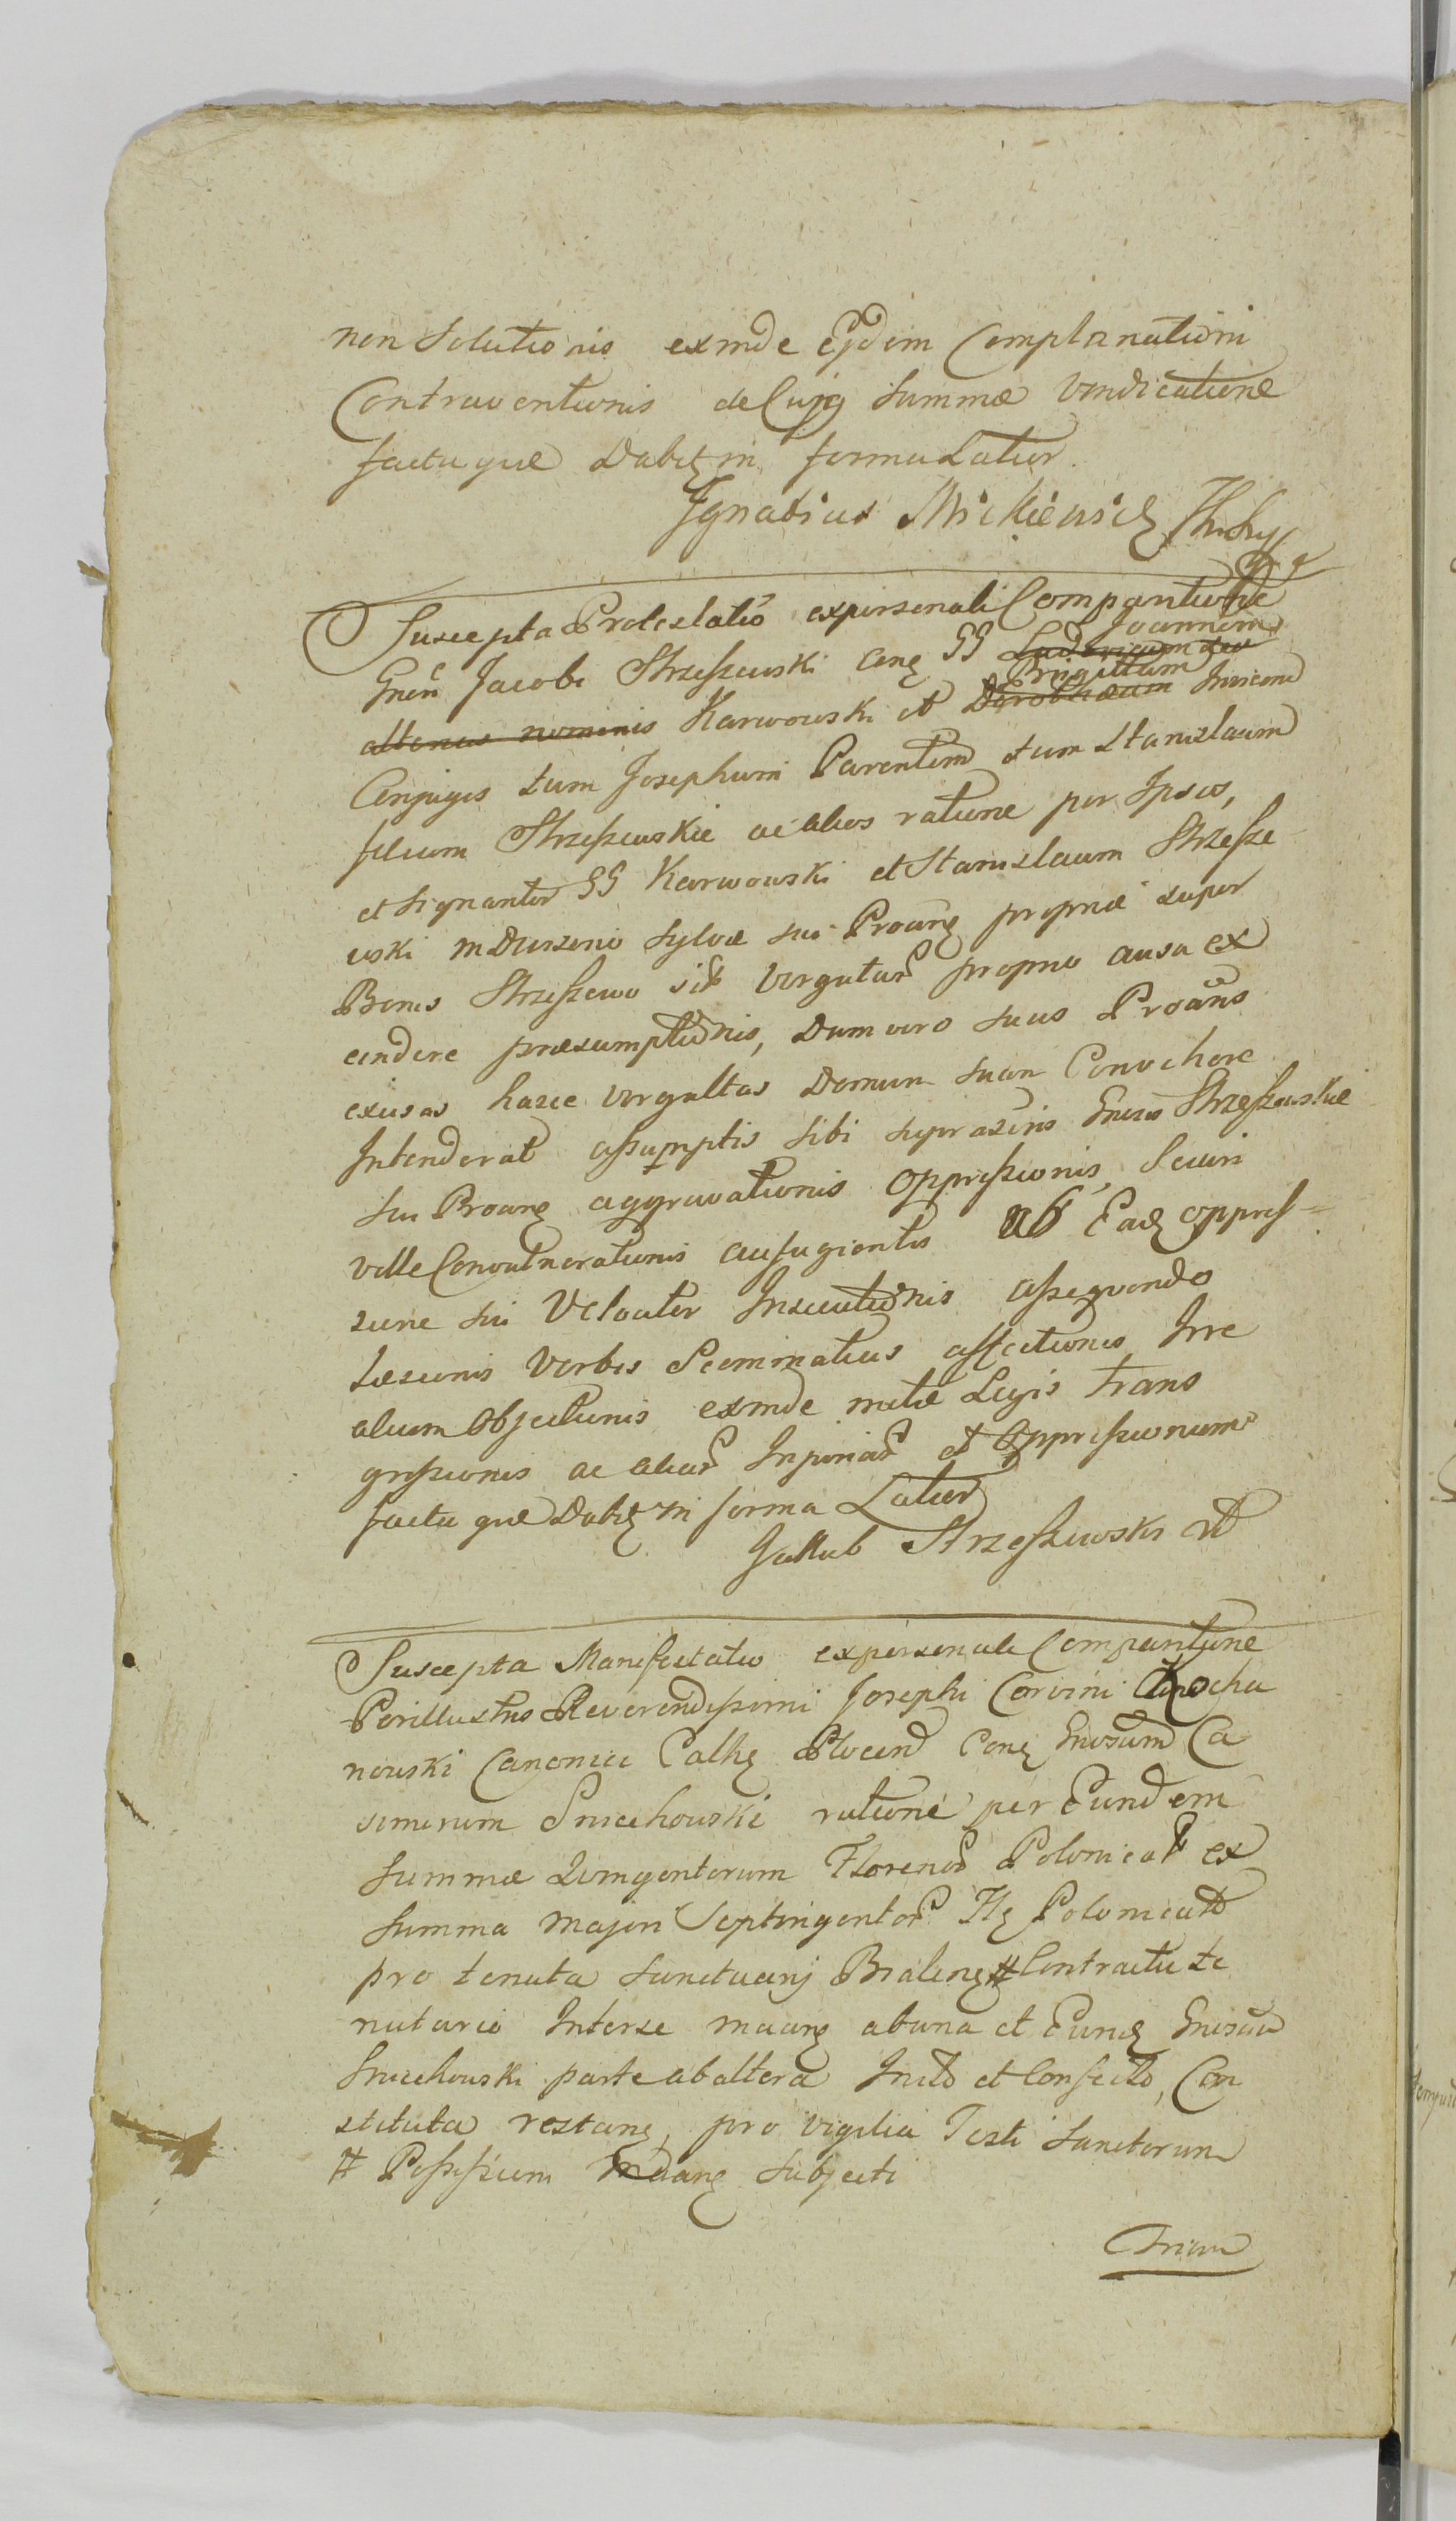 non Solutionis exinde Ejdem Complanationi
Contraventionis de Cujq Summæ Vendicatione
factu que Dabitz in forma Latior
Ignatius Mickiewicz
Suscepta Protestatio ex personali Comparitione
Gnēri Jacobi Strzeszewski cong GG Ludovicum seu Joannem
alterius nominis Karwowski et Dorotheam Brigittam Invicem
Conjuges tum Josephum Parentem et um Stanislaum
filium Strzeszewskie ac alios ratione per Ipsos,
et Signanter GG Karwowski et Stanislaum Strzesze
wski in Dursenio Sylvæ sui Proāng propriæ super
Bonis Strzeszewo sit Virgultar proprio ausa ex
cindere præsumptionis, Dum vero suus Proans
excisas hasce virgultas Domum suam Convehere
Intenderat assumptis sibi suprascris Gnēros Strzeszewskie
sui Proang aggravationis Oppressionis, Securi
ville Convulnerationis aufugientis ab Eadz oppress=
ione sui Velociter Insecutionis assequendo
Læsionis Verbis Scominaticis affectiones Irre
alium Objectionis exinde mulæ Legis Trans
gressionis ac aliar Injuriar et Oppressionum
factu que Dabitz in forma Latior
Jakub Strzeszewski
Suscepta Manifestatio ex personali Comparitione
Perillustris Reverendissimi Josephi Corvini Kocha
nowski Canonici Calhz Plocens Cong Gnosum Ca
simirum Sniechowski ratione per Eundem
Summæ Quingentorum Florenor Polonicar ex
Summa majori Septingentor Flz Polonicar
pro tenuta Sanctuarij Bialeng # Contractu te
nutario Interse maang abuna et Eundz Gnosum
Sniechowski parte ab altera Inito et Confecto, Con
stituta restang, pro vigilia Festi Sanctorum
# Possessium Indang subjecti
Trium